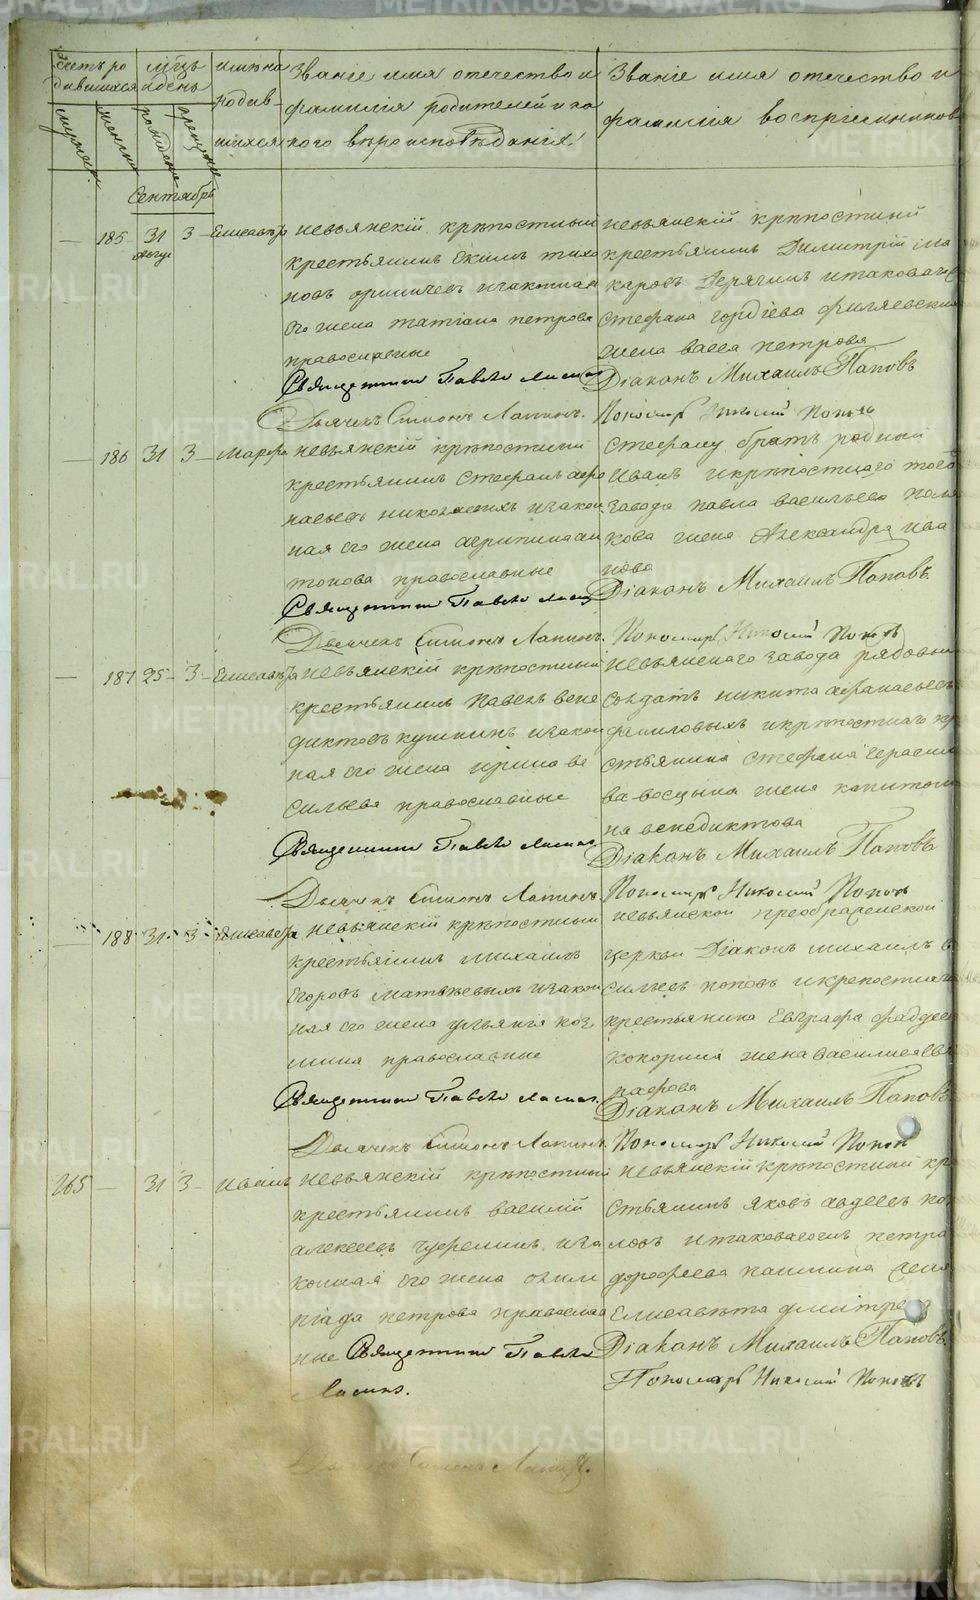 Счетъ ро
дившихся
мужеска
женска
Мѣцъ
и день
рожденія
крещенія
имяна
родив-
шихся
Званіе имя отечество и
фамилія родителей и ка
кого вѣроисповѣданія.
Званіе имя отечество и
фамилія воспріемниковъ
Сентябрь
— 185 31 3 — Елисавета
невьянскій крѣпостный
крестьянинъ Екимъ
и законная
его жена татіана петрова
православные
Священникъ Павелъ
Дьячекъ Симонъ Лапинъ.
невьянскій крѣпостный
крестьянинъ Димитрій ма
каровъ Дерягинъ и таковаго
Стефана гордіева
жена васса петрова
Діаконъ Михаилъ Поповъ
Пономарь Николай Поповъ
— 186 31 3 — Марфа
невьянскій крѣпостный
крестьянинъ Стефанъ афо
насьевъ и закон
ная его жена агрипина ан
тонова православные
Священникъ Павелъ
Дьячекъ Симонъ Лапинъ.
Стефану братъ родный
Иванъ и крѣпостнаго тогоѣ
завода павла васильева поля
кова жена Александра ива
нова
Діаконъ Михаилъ Поповъ.
Пономарь Николай Поповъ
— 187 25 — 3 — Елисавета
невьянскій крѣпостный
крестьянинъ Павелъ вене
диктовъ и закон
ная его жена ирина ва
сильева православные
Священникъ Павелъ
Дьячекъ Симонъ Лапинъ.
невьянскаго завода рядовый
солдатъ никита афанасьевъ
и крѣпостнаго кре
стьянина Стефана герасимо
ва жена капитоли
на венедиктова
Діаконъ Михаилъ Поповъ
Пономарь Николай Поповъ
— 188 31 3 Елисавета
невьянскій крѣпостный
крестьянинъ михаилъ
Егоровъ матвѣевыхъ и закон
ная его жена ульянія коз
мина православные
Священникъ Павелъ
Дьячекъ Симонъ Лапинъ
невьянской преображенской
церкви Діаконъ михаилъ ва
сильевъ поповъ и крепостнаго
крестьянина Евграфа фаддеева
кокорина жена василиса
Діаконъ Михаилъ Поповъ.
Пономарь Николай Поповъ
265 — 31 3 — Иванъ
невьянскій крѣпостный
крестьянинъ василій
алексеевъ и за
конная его жена олим
піада петрова православ
ные Священникъ Павелъ
Дьячекъ Симонъ Лапинъ.
невьянскій крѣпостный кре
стьянинъ яковъ авдеевъ
и таковагожъ петра
дорофеева жена
Елисавета дмитрева
Діаконъ Михаилъ Поповъ.
Пономарь Николай Поповъ
METRIKI.GASO-URAL.RU